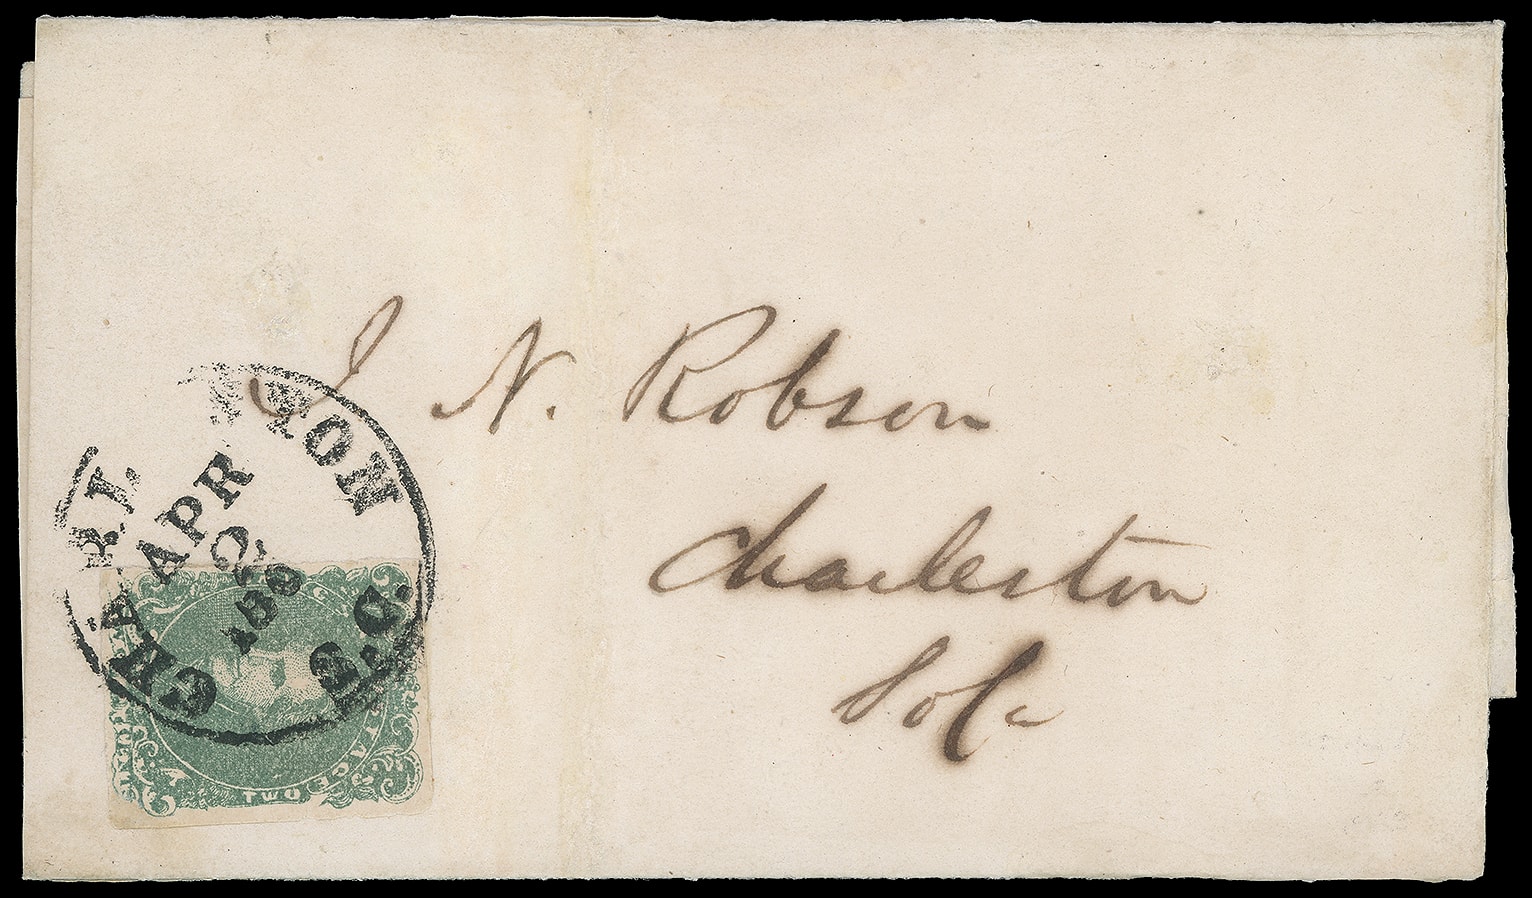 J. N. Robson
Charleston
So Ca
CHARLESTON S.C.
APR
2
TWO